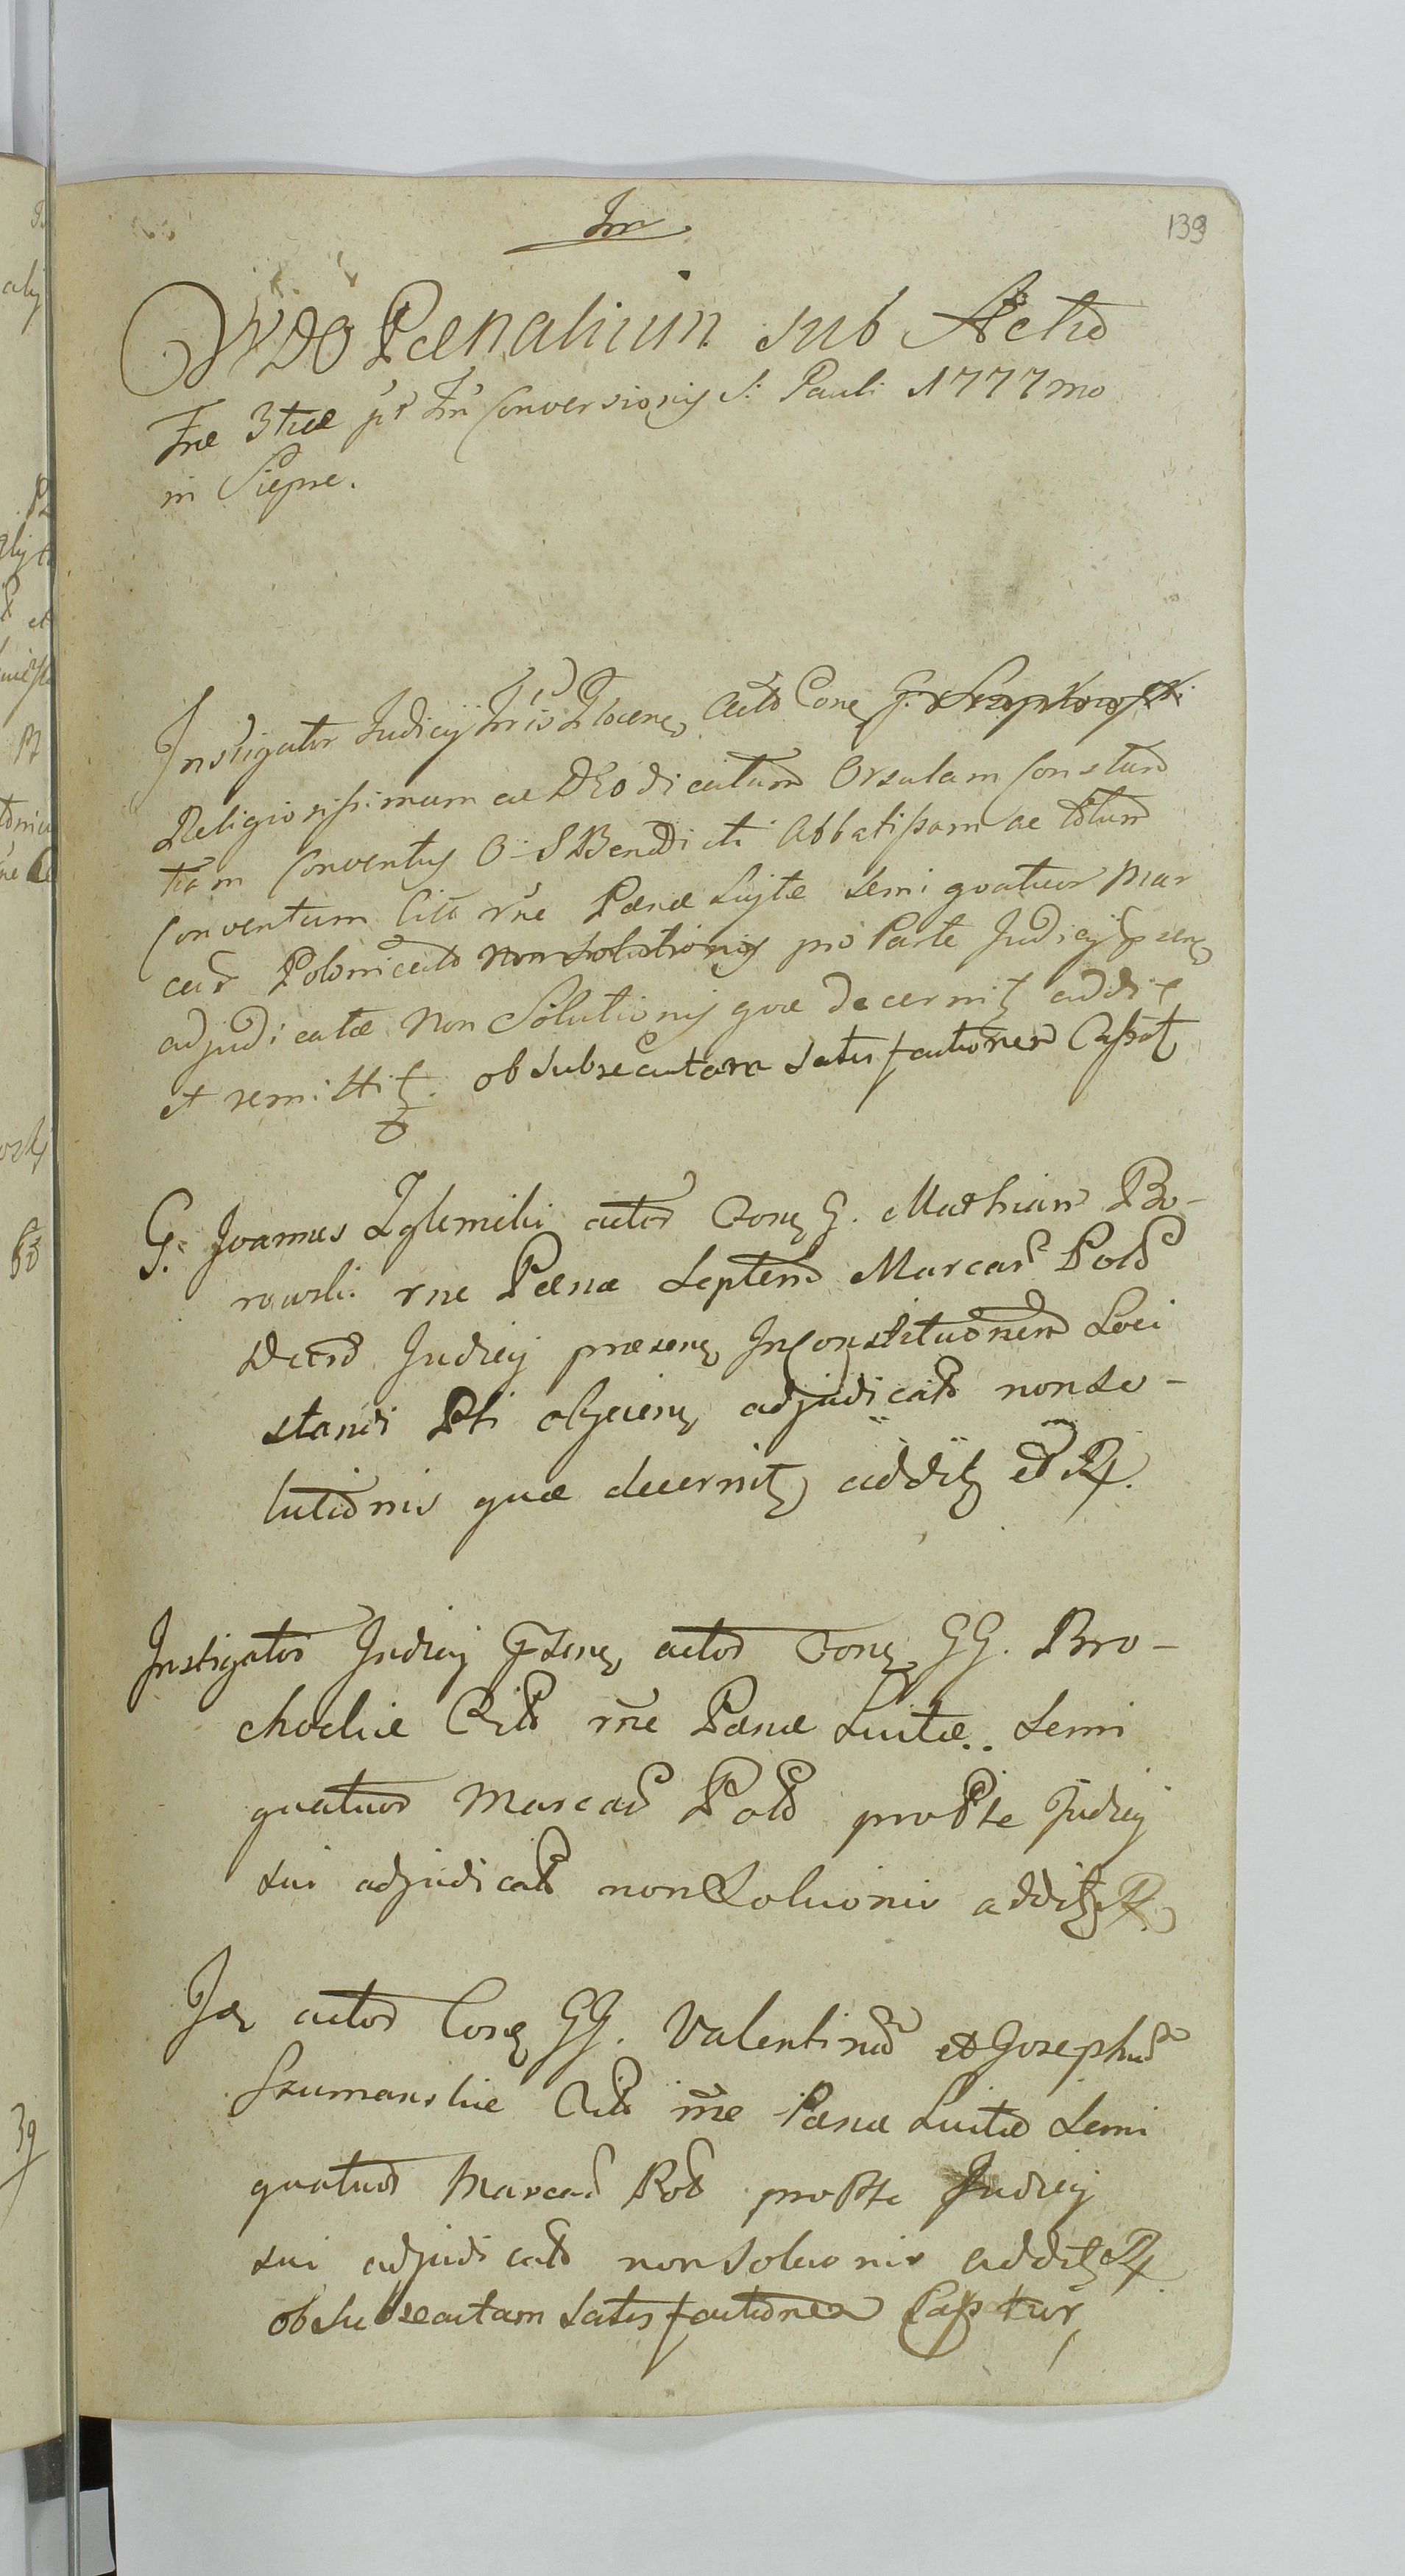 Im
139
Ordo Pœnalium sub Actu
Fræ 3tiæ pt Fm Conversionis S: Pauli 1777mo
in Sierpne.
Instigator Judicij Trris Plocens Actor Cong G.
Religiosissimam ac DEO dicatam Orsulam Constan
tiam Conventus O. S Benedicti Abbatissam ac totum
Conventum Citt rne Pænæ Luytæ Semi quatuor Mar
car Polonicalo non Solutionis pro Parte Judicij psens
adjudicatæ non Solutionis quæ decernit addit
et remittit. ob subsecutam satisfactionem Cassat
G. Joannes Zglenicki actor Cong G. Mathiam Bo-
rowski rne Pænæ Septem Marcar Pold
Decto Judicij præsens In Constitutionem Loci
standi Pti objiciens adjudicats non so-
lutionis quæ decernit addit et R.
Instigator Judicij psens actor Cong GG. Bro-
chockie Citt rne Pænæ Luitæ.. Semi
quatuor Marcar Pold pro Pte Judicij
sui adjudicats non Soluonis addit R.
Id actor Cong GG. Valentinu et Josephu
Szumanskie Citt rne Pænæ Luitæ Semi
quatuor Marcar Pol pro Pte Judicij
sui adjudicats non Soluonis addit R
ob subsecutam satisfactionem Cassatur